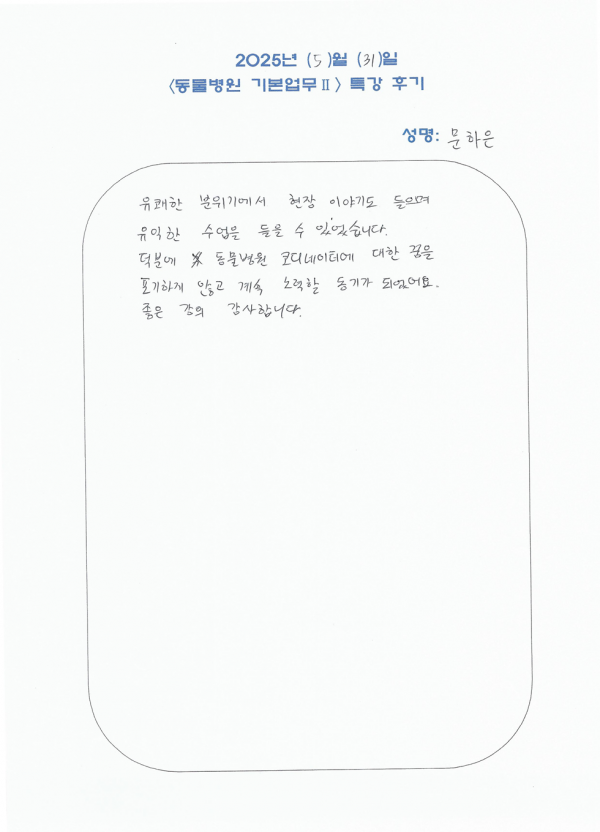 2025년 (5)월 (31)일
<동물병원 기본업무Ⅱ> 특강 후기
성명: 문하은
유쾌한 분위기에서 현장 이야기도 들으며
유익한 수업을 들을 수 있었습니다.
덕분에 동물병원 코디네이터에 대한 꿈을
포기하게 않고 계속 노력할 동기가 되었어요.
좋은 강의 감사합니다.